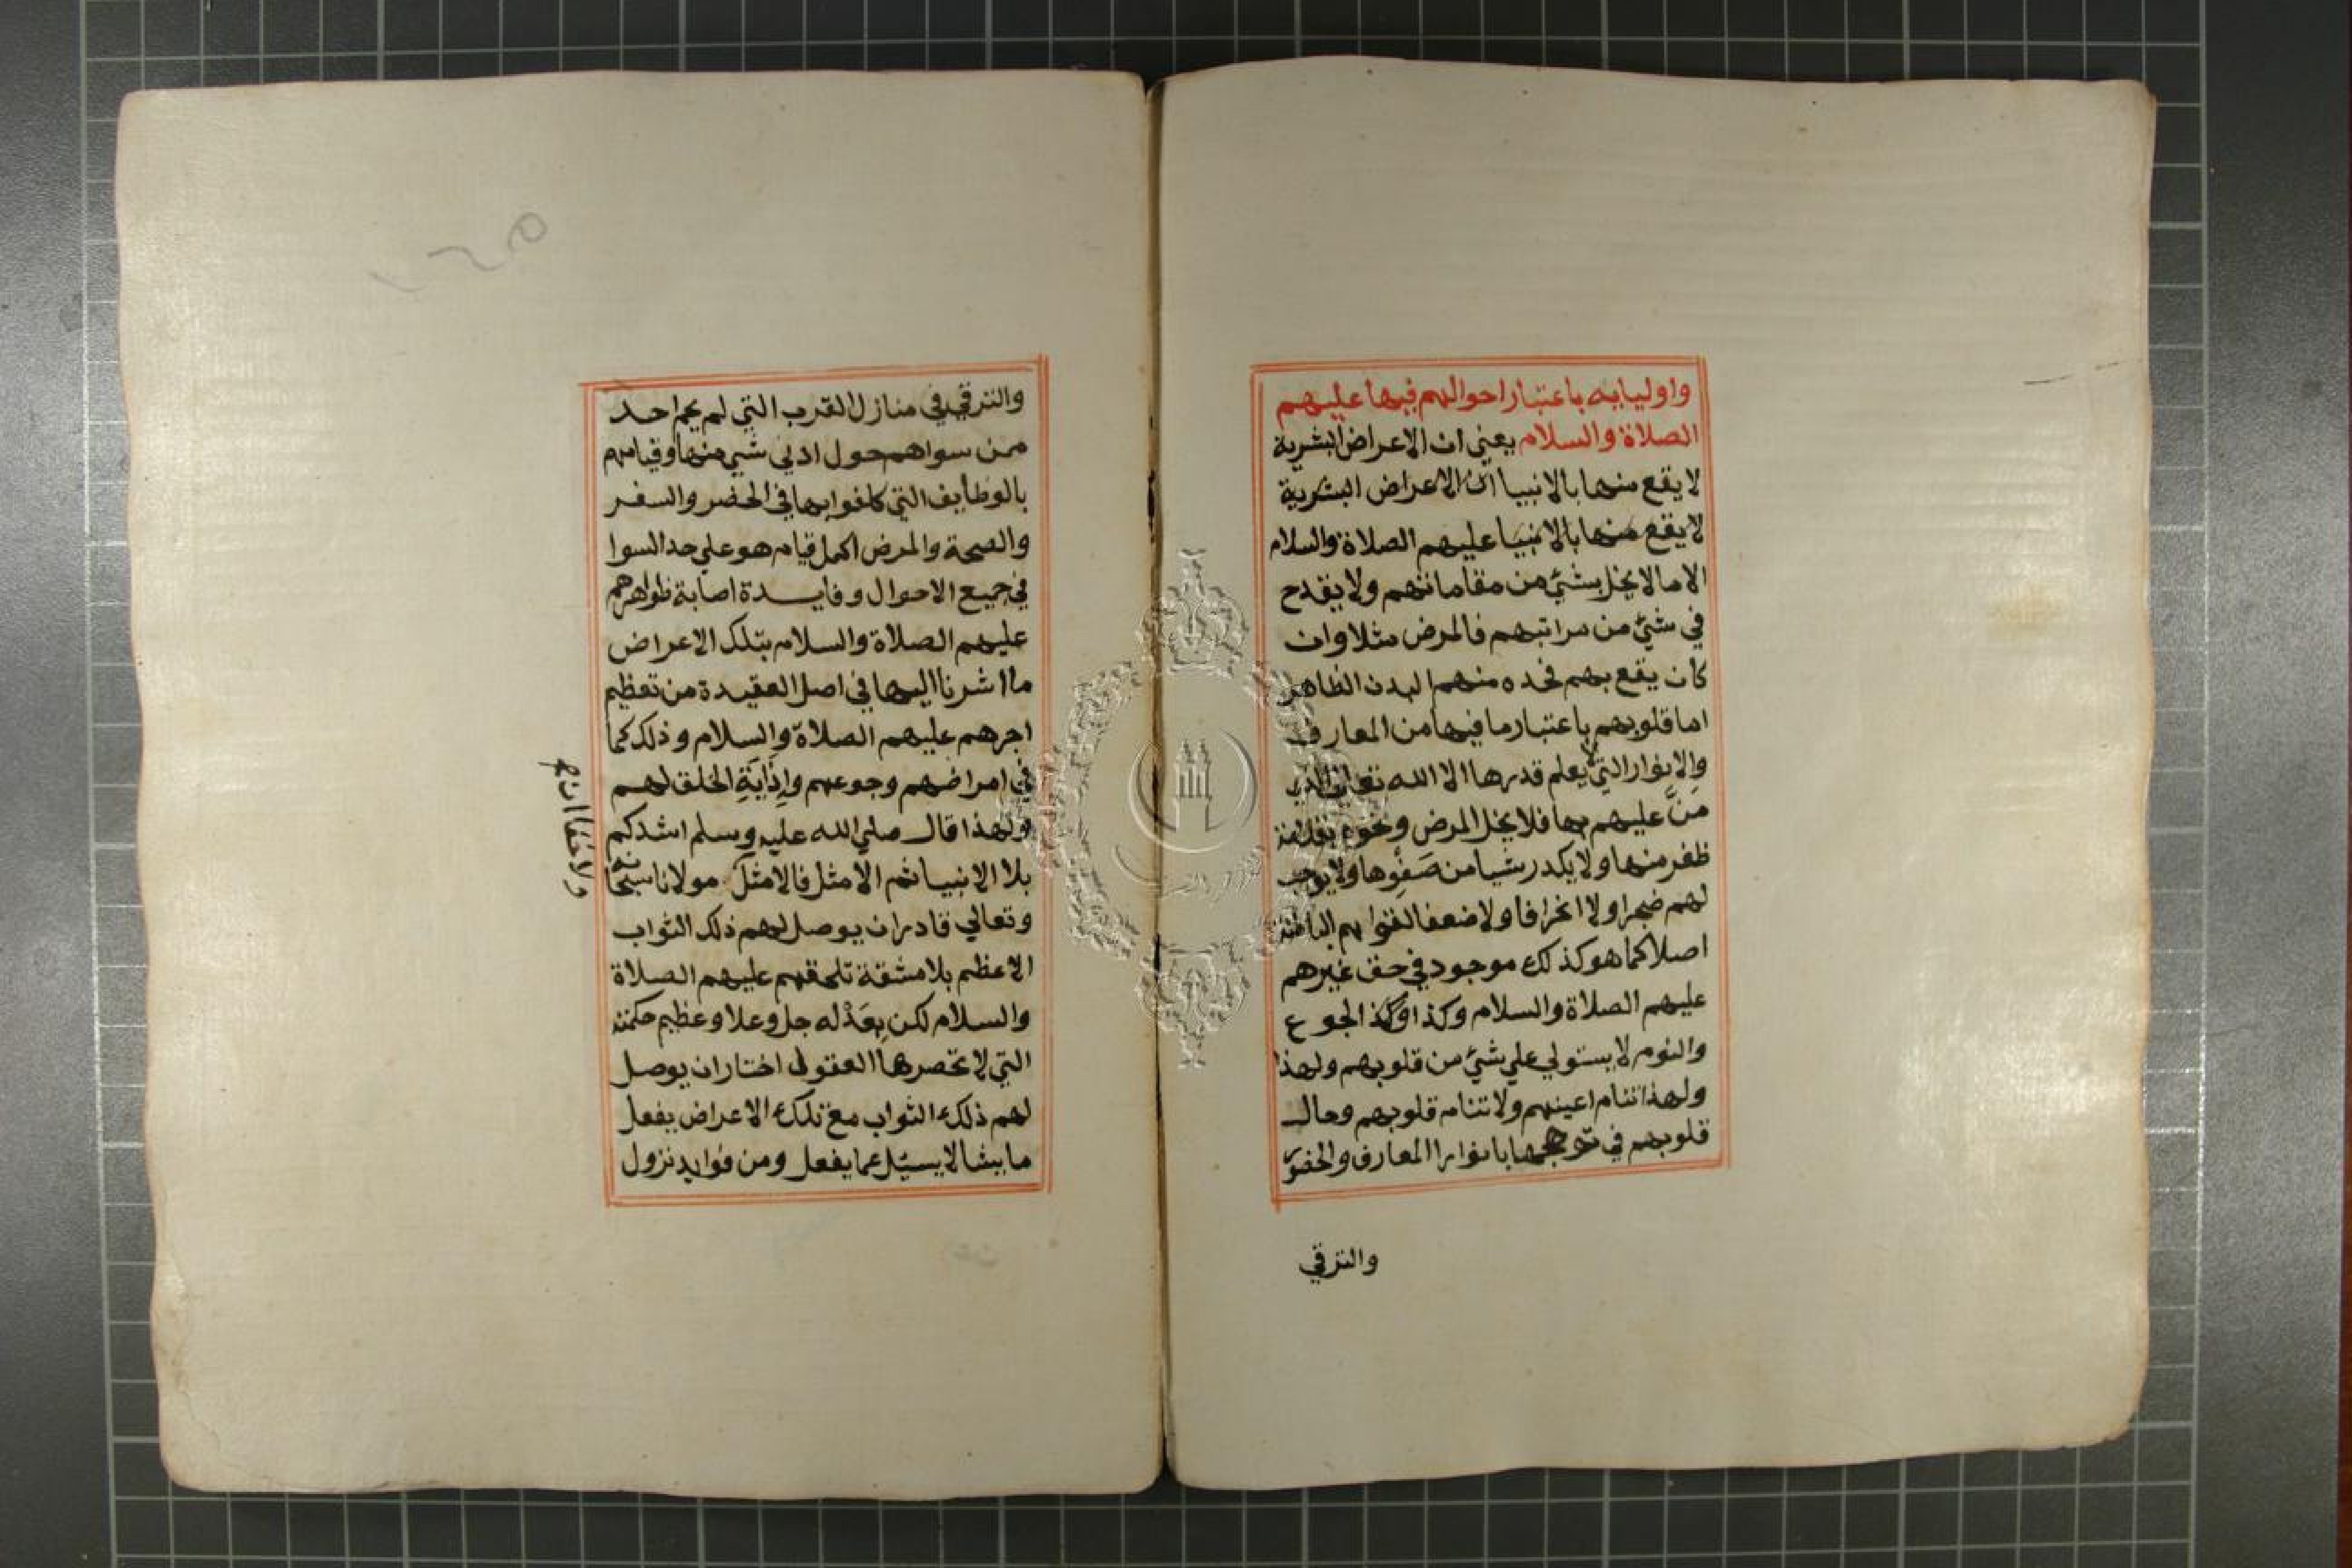 واوليايه باعتبار احوالهم فيها عليهم
الصلاة والسلام يعني ان الاعراض البشرية
لا يقع منها بالانبيا ان الاعراض البشرية
لا يقع منها بالانبيا عليهم الصلاة والسلام
الا ما لا يخل بشئ من مقاماتهم ولا يقدح
في شئ من مراتبهم فالمرض مثلا وان
كان يقع بهم فحده منهم البدن الظاهر
اما قلوبهم باعتبار ما فيها من المعارف
والانوار التي لا يعلم قدرها الا الله تعالى الذي
مَنَّ عليهم بها فلا يخل المرض ونحوه بقلامة
ظفر منها ولا يكدر شيا من صَفْوِها ولا يوجب
لهم ضجرا ولا انحرافا ولا ضعفا لقواهم الباطنة
اصلا كما هو كذلك موجود في حق غيرهم
عليهم الصلاة والسلام وكذا وكذا الجوع
والنوم لا يستولي علي شئ من قلوبهم ولهذا
ولهذا تنام اعينهم ولا تنام قلوبهم وحال
قلوبهم في توهجها بانوار المعارف والحضور
والترقي
١٢٥
والترقي في منازل القرب التي لم يحم احد
ممن سواهم حول ادني شي منها وقيامهم
بالوظايف التي كلفوا بها في الحضر والسفر
والصحة والمرض اكمل قيام هو علي حد السوا
في جميع الاحوال وفايدة اصابة ظواهرهم
عليهم الصلاة والسلام بتلك الاعراض
ما اشرنا اليها في اصل العقيدة من تعظيم
اجرهم عليهم الصلاة والسلام وذلك كما
في امراضهم وجوعهم وإِذَايَةِ الخلق لهم
ولهذا قال صلي الله عليه وسلم اشدكم
بلا الانبيا ثم الامثل فالامثل مولانا سبحانه
ولا خفا ان
وتعالي قادر ان يوصل لهم ذلك الثواب
الاعظم بلا مشقة تلحقهم عليهم الصلاة
والسلام لكن بِعَدْله جل وعلا وعظيم حكمته
التي لا تحصرها العقول اختار ان يوصل
لهم ذلك الثواب مع تلك الاعراض يفعل
ما يشا لا يسيل عما يفعل ومن فوايد نزول